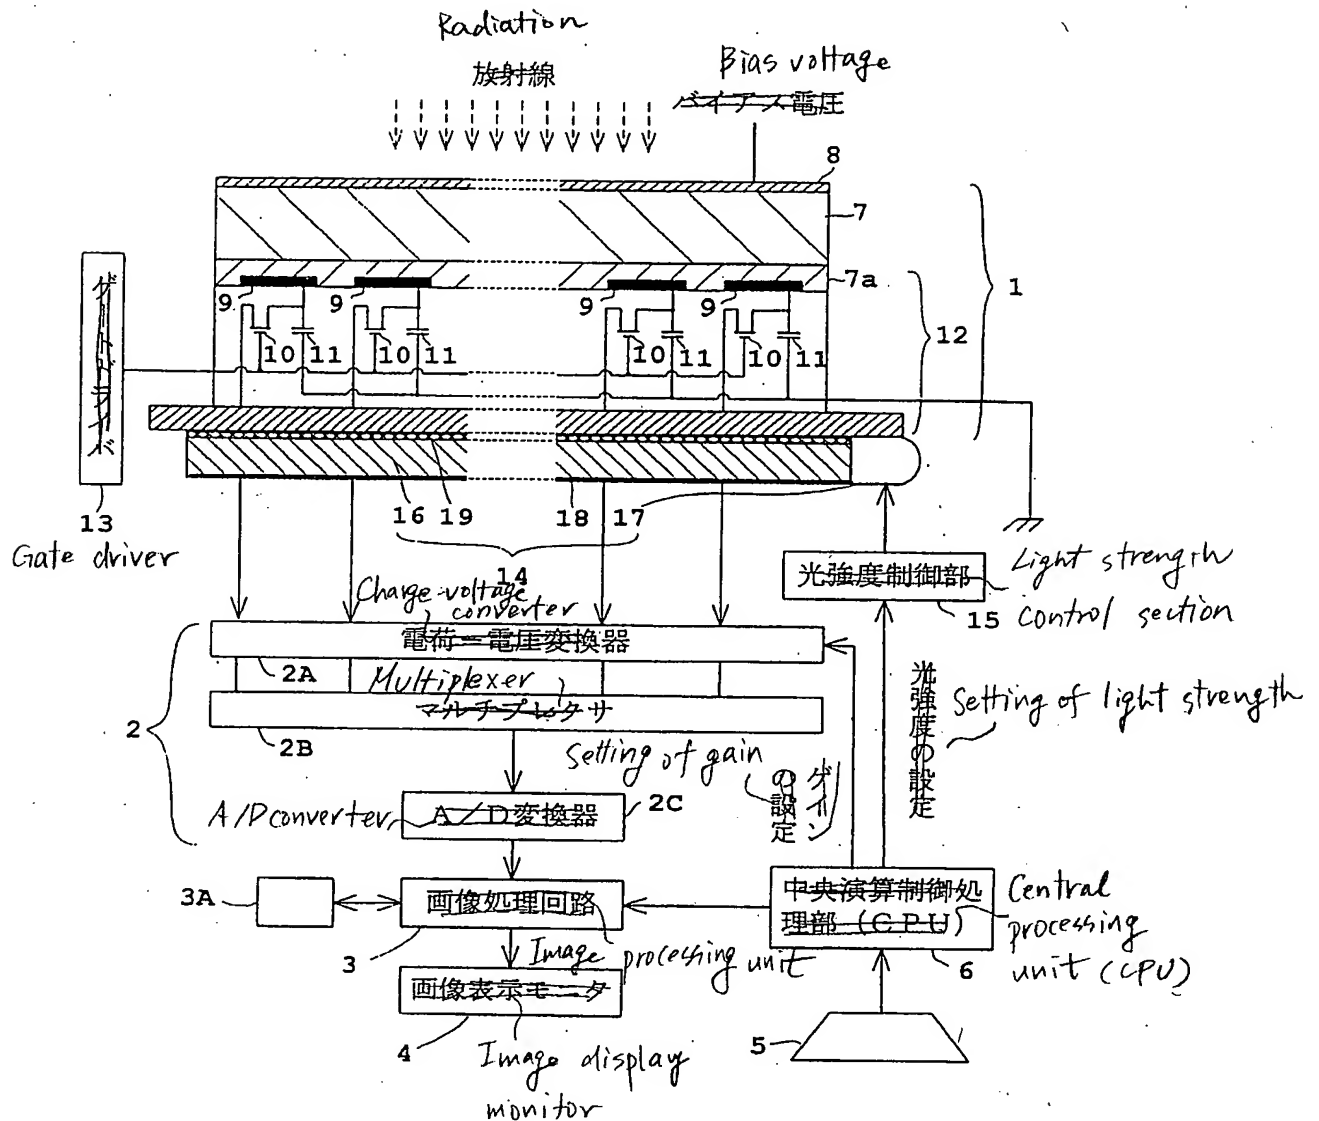 Radiation
放射線
Bias voltage
バイアス電圧
8
7
7a
1
12
9
9
9
9
10
11
10
11
10
11
10
11
ゲートドライバ
13
Gate driver
16
19
18
17
14
光強度制御部
15
Light strength
control section
Charge-voltage
converter
電荷－電圧変換器
2A
Multiplexer
マルチプレクサ
2B
2
Setting of gain
ゲイン
の設定
光強度の設定
Setting of light strength
A/D converter
A／D変換器
2C
3A
画像処理回路
3
Image processing unit
中央演算制御処
理部（CPU）
6
Central
processing
unit (CPU)
画像表示モニタ
4
Image display
monitor
5